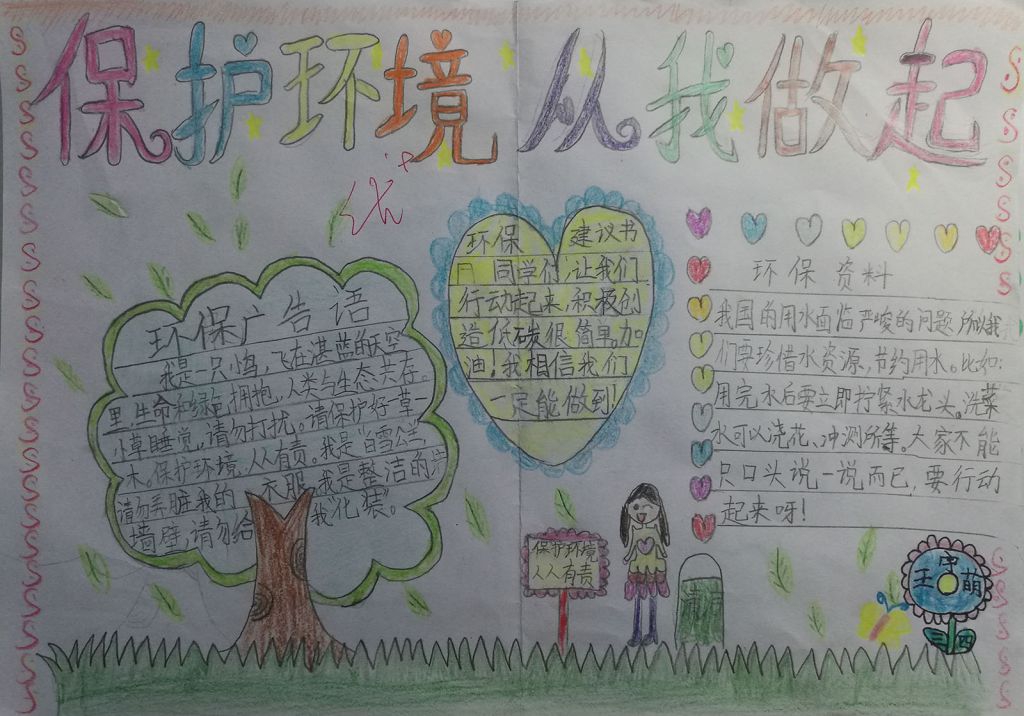 保护环境从我做起
优+
环保广告语
我是一只小鸟,飞在湛蓝的天空
里,生命和绿色拥抱,人类与生态共存。
小草睡觉,请勿打扰。请保护好一草一
木。保护环境,人人有责。我是“白雪公主”,
请勿弄脏我的衣服。我是整洁的
墙壁,请勿给我“化装”。
环保 建议书
同学们,让我们
行动起来,积极创
造低碳很简单,加
油!我相信我们
一定能做到!
环保资料
我国的用水面临严峻的问题,所以我
们要珍惜水资源,节约用水。比如:
用完水后要立即拧紧水龙头。洗菜
水可以浇花、冲测所等。大家不能
只口头说一说而已,要行动
起来呀!
保护环境
人人有责
王 中 萌
三 四